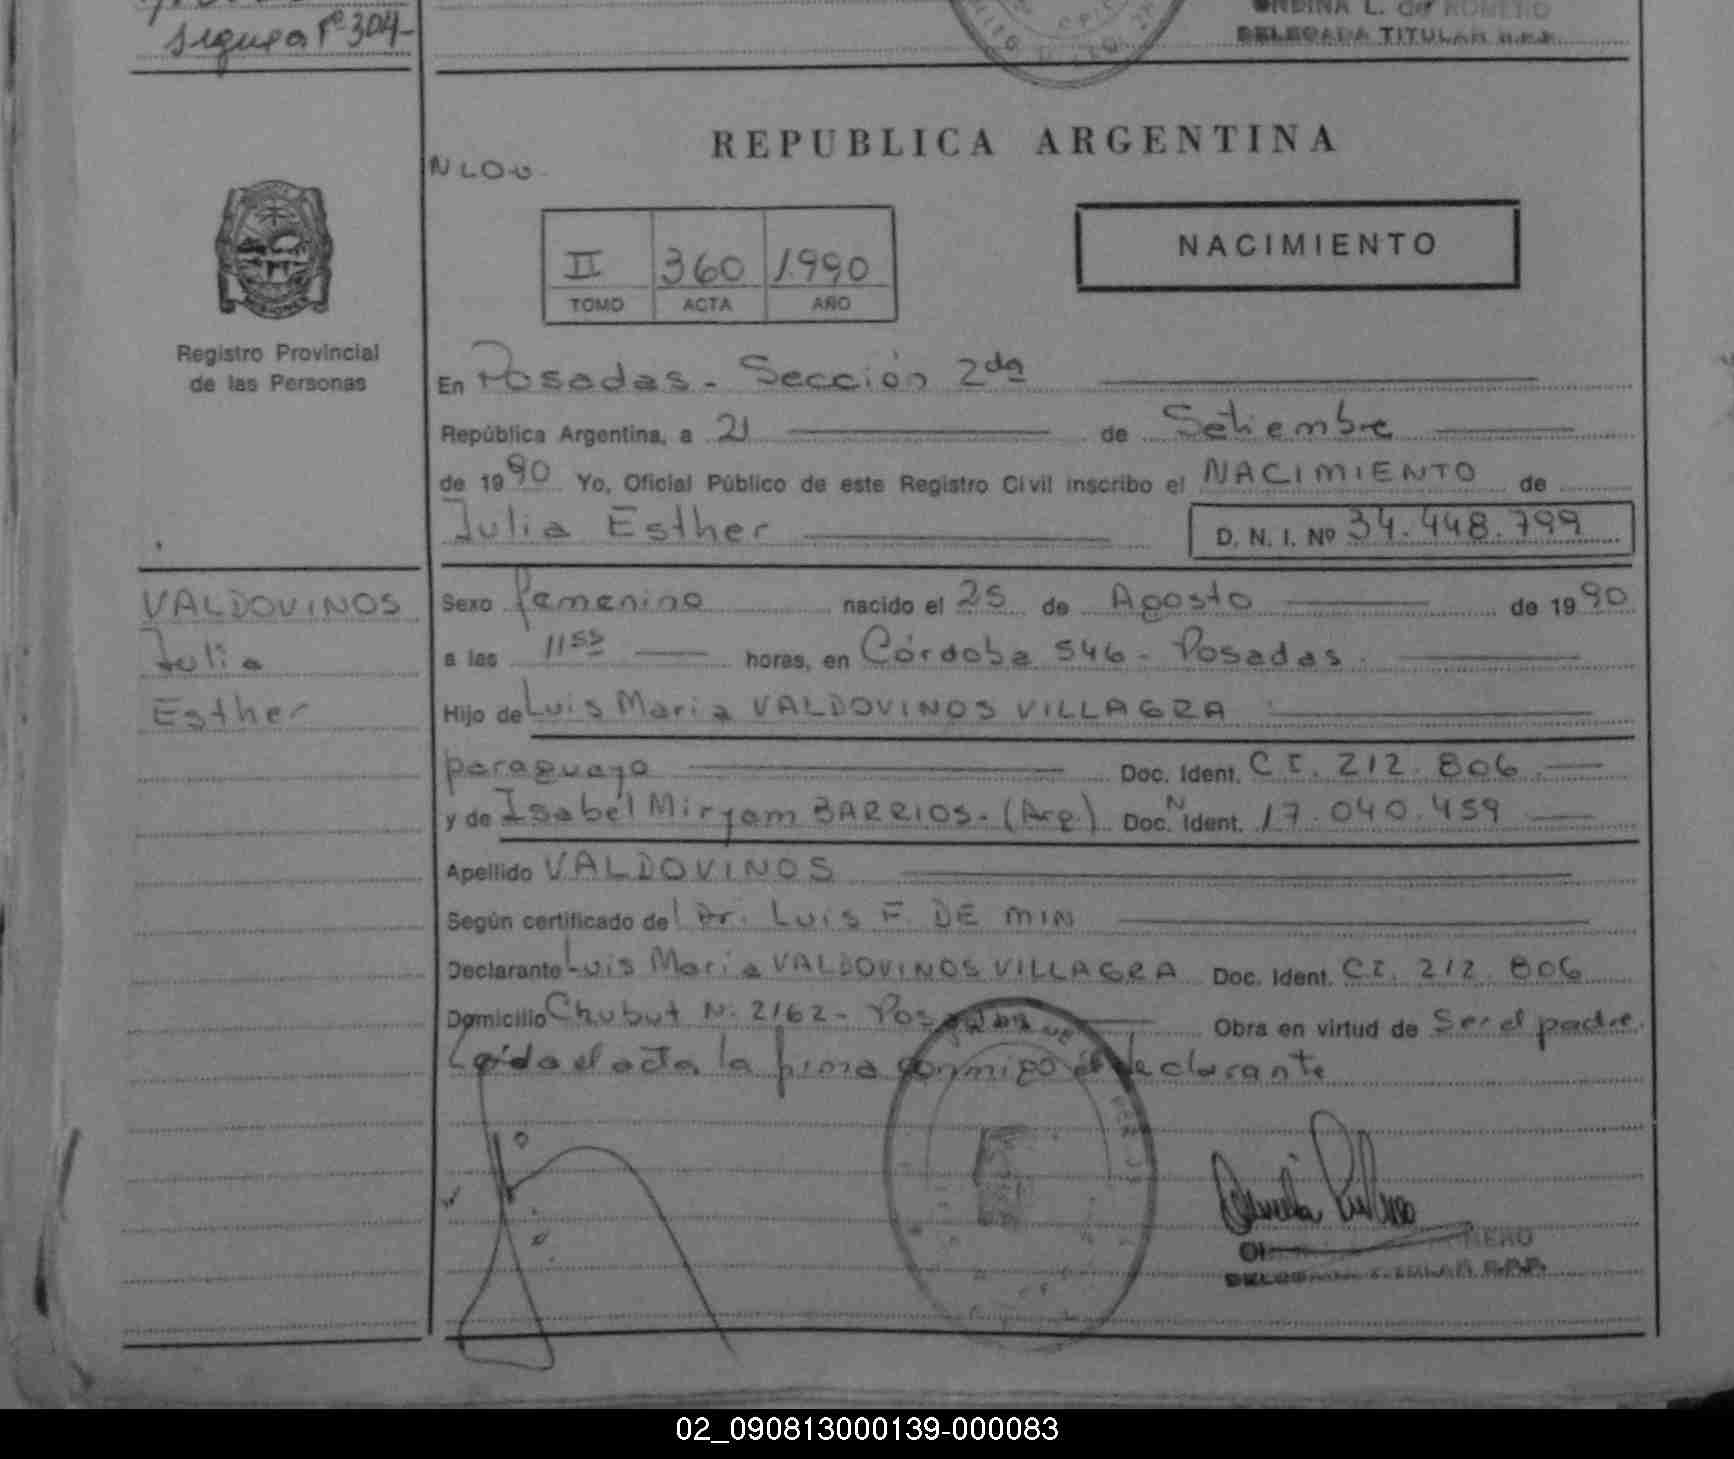 Sigue a Fº 304-
ONDINA L. de ROMERO
DELEGADA TITULAR R.P.P.
REPUBLICA ARGENTINA
II 360 1990
TOMO ACTA AÑO
NACIMIENTO
Registro Provincial
de las Personas
En Posadas - Sección 2da
República Argentina, a 21 de Setiembre
de 1990 Yo, Oficial Público de este Registro Civil inscribo el NACIMIENTO de
Julia Esther D. N. I. Nº 34.448.799
VALDOVINOS
Julia
Esther
Sexo femenino nacido el 25 de Agosto de 1990
a las 11 55 horas, en Córdoba 546 - Posadas.
Hijo de Luis Maria VALDOVINOS VILLAGRA
paraguayo Doc. Ident. C I. 212.806
y de Isabel Miryam BARRIOS. (Arg.) Doc. N Ident. 17.040.459
Apellido VALDOVINOS
Según certificado del Dr. Luis F. DE MIN
Declarante Luis Maria VALDOVINOS VILLAGRA Doc. Ident. C I. 212.806
Domicilio Chubut N. 2162 - Posadas Obra en virtud de Ser el padre.
Leída el acta, la firma conmigo el declarante
DELEGADA TITULAR R.P.P.
02_090813000139-000083